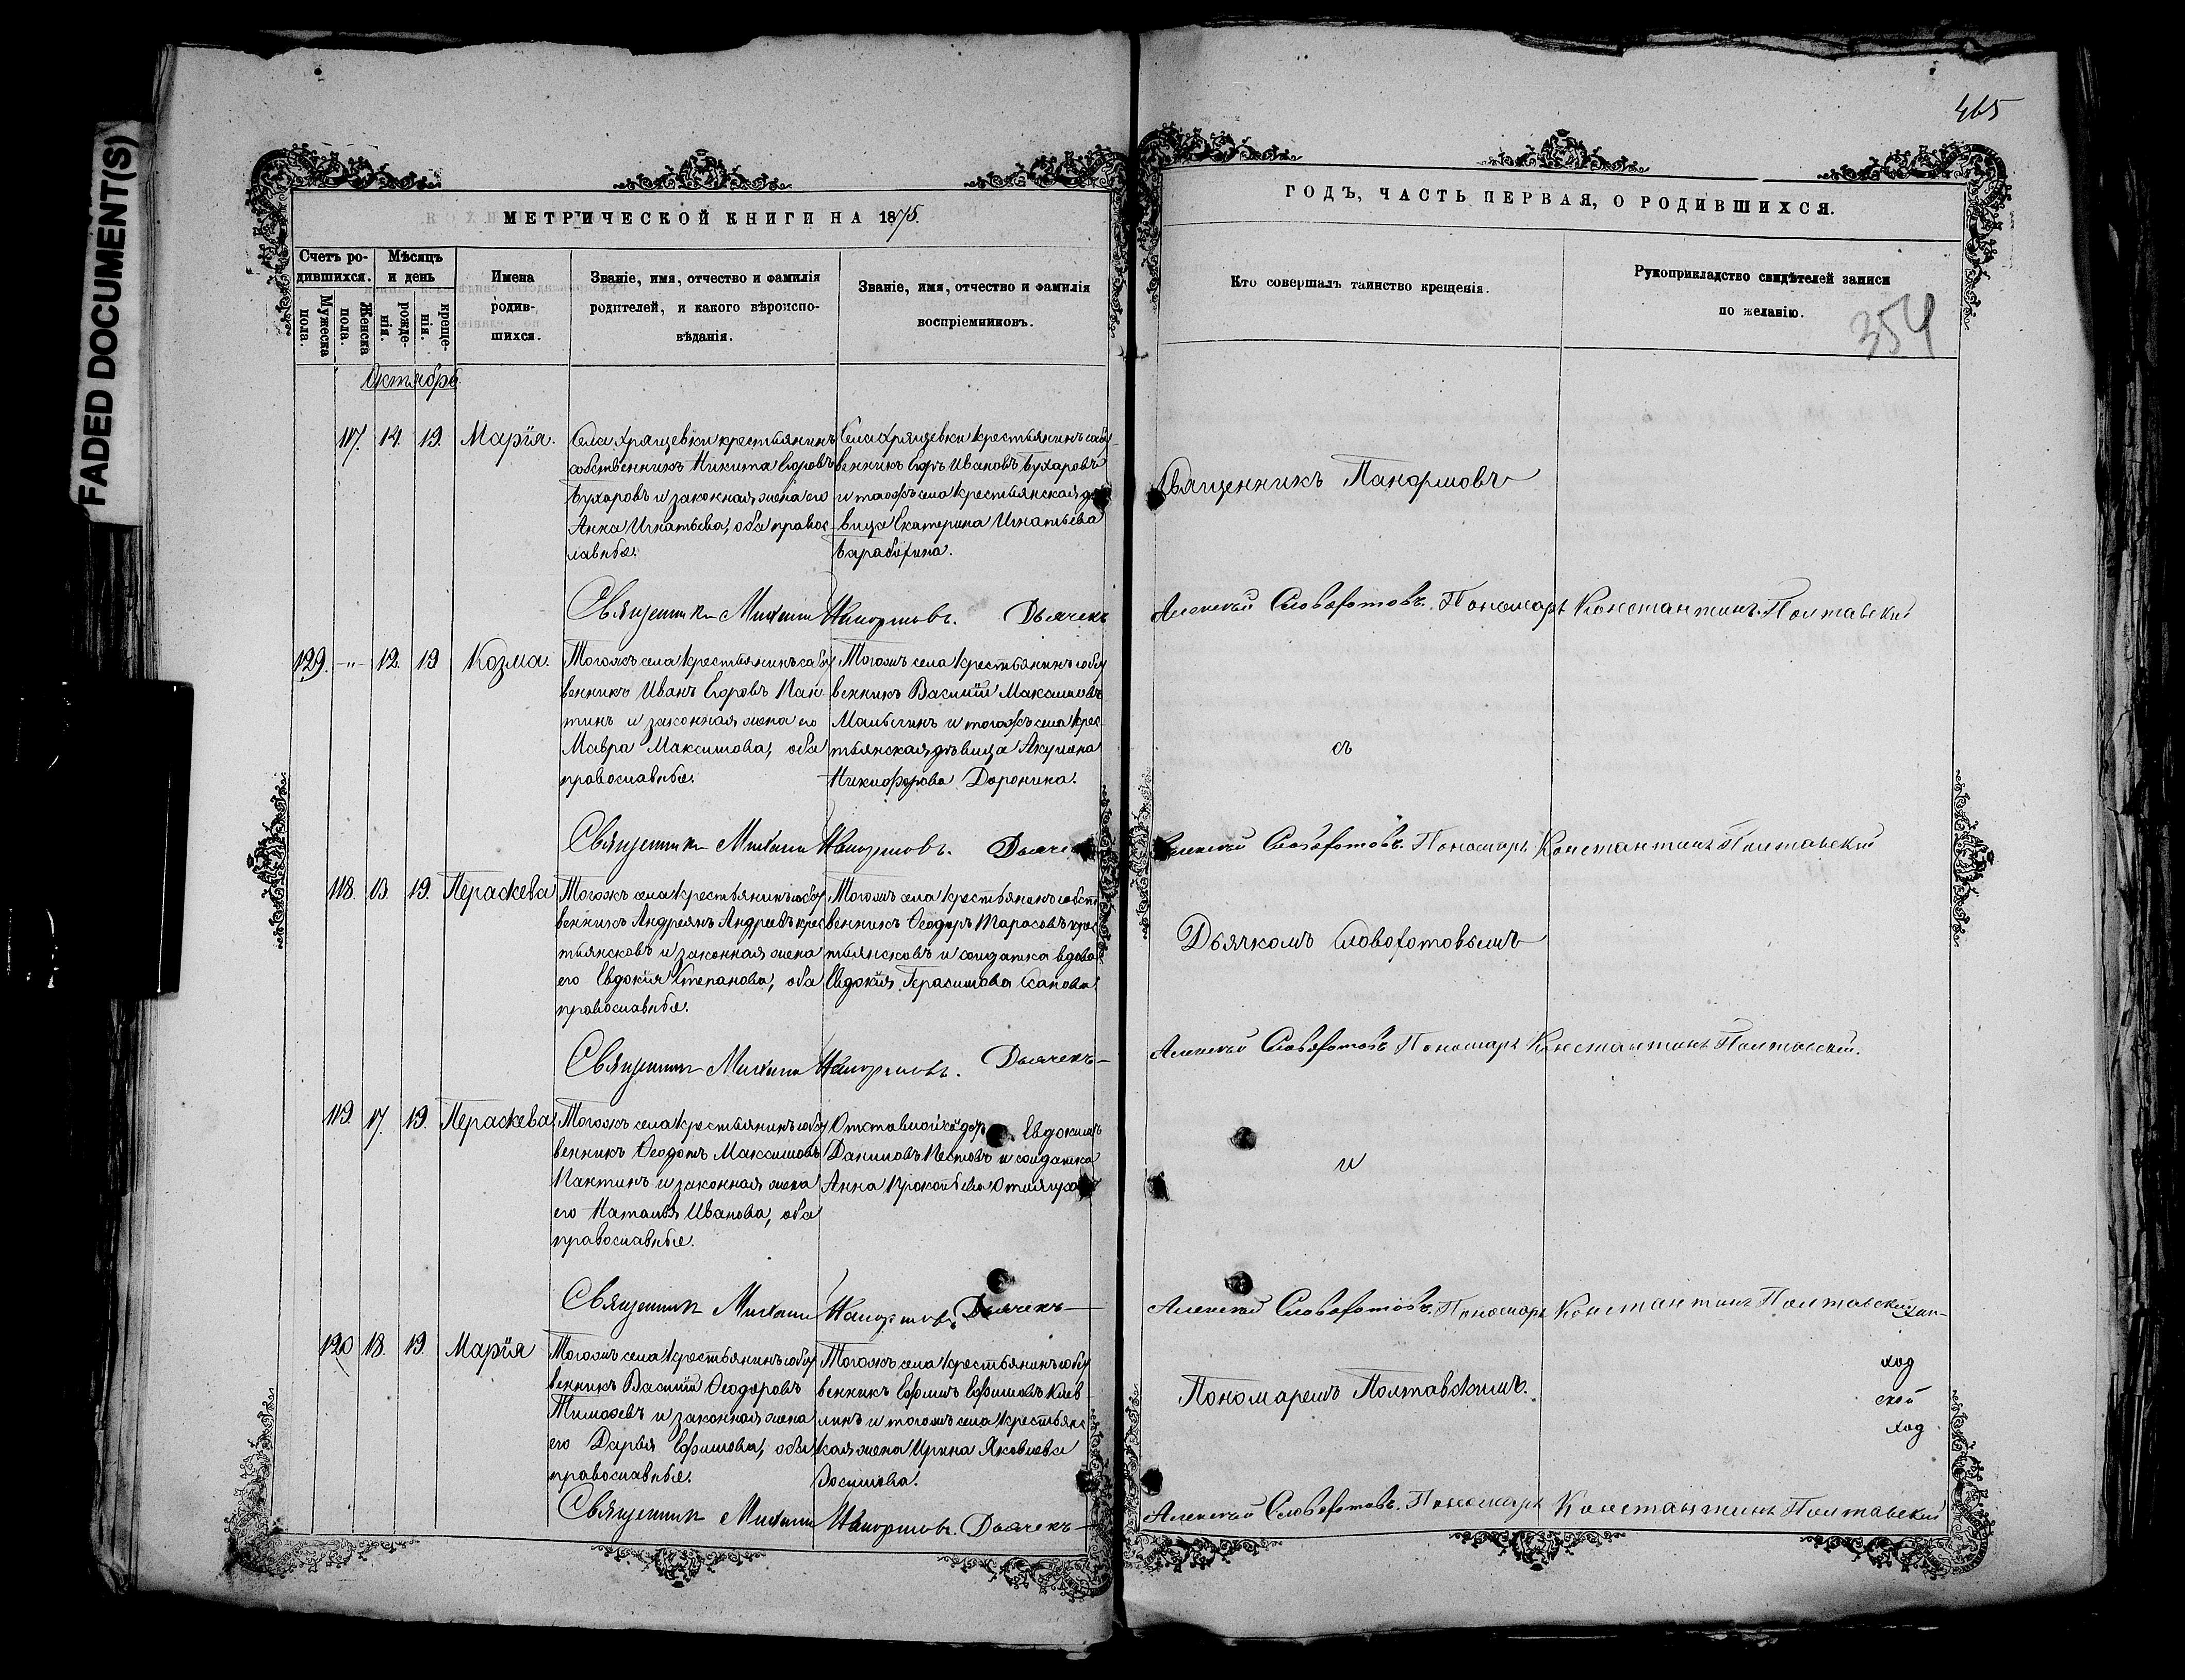 FADED DOCUMENT(S)
465
МЕТРИЧЕСКОЙ КНИГИ НА 1875.
ГОДЪ, ЧАСТЬ ПЕРВАЯ, О РОДИВШИХСЯ.
Счетъ родившихся.
Мужеска пола.
Женска пола.
Мѣсяцъ и день
рожденія.
крещенія.
Имена
родив-
шихся.
Званіе, имя, отчество и фамилія
родителей, и какого вѣроиспо-
вѣданія.
Званіе, имя, отчество и фамилія
воспріемниковъ.
Кто совершалъ таинство крещенія.
Рукоприкладство свидѣтелей записи
по желанію.
354
Октябрь
117. 14. 19. Марія.
Села Хрящевки крестьянинъ
собственникъ Никита Егоровъ
Бухаровъ и законная жена его
Анна Игнатьева, оба правос-
лавные.
Села Хрящевки крестьянинъ собст
венникъ Егоръ Ивановъ Бухаровъ
и тогожъ села крестьянская дѣ
вица Екатерина Игнатьева
Священникъ
Священникъ Михаилъ Дьячекъ
Алексѣй Словохотовъ. Пономарь Константинъ Полтавский
129. -"- 12. 19 Козма.
Тогожъ села крестьянинъ собст
венникъ Иванъ Егоровъ Пан
тинъ и законная жена его
Мавра Максимова, оба
православные.
Тогожъ села крестьянинъ собст
венникъ Василій Максимовъ
и тогожъ села крес
тьянская дѣвица Акулина
Никифорова Доронина.
съ
Священникъ Михаилъ Дьячекъ
Алексѣй Словохотовъ. Пономарь Константинъ Полтавский
118. 13. 19. Пераскева
Тогожъ села крестьянинъ собст
венникъ Андреянъ Андреевъ крес
тьянсковъ и законная жена
его Евдокія Степанова, оба
православные.
Тогожъ села крестьянинъ собст
венникъ Ѳеодоръ Тарасовъ крес
тьянсковъ и солдатка вдова
Евдокія Герасимова
Дьячкомъ Словохотовымъ
Священникъ Михаилъ Дьячекъ
Алексѣй Словохотовъ Пономарь Константинъ Полтавский.
119. 17. 19. Пераскева
Тогожъ села крестьянинъ собст
венникъ Ѳеодотъ Максимовъ
Пантинъ и законная жена
его Наталья Иванова, оба
православные.
Отставной Евдокимъ
Даниловъ Пестовъ и солдатка
Анна Прокопьева
и
Священникъ Михаилъ Дьячекъ
Алексѣй Словохотовъ. Пономарь Константинъ Полтавский
120 18. 19. Марія
Тогожъ села крестьянинъ собст
венникъ Василій Ѳеодоровъ
Тимофеевъ и законная жена
его Дарья Ефимова, оба
православные.
Тогожъ села крестьянинъ собст
венникъ Ефимъ Ефимовъ Киев
линъ и тогожъ села крестьянс
кая жена Ирина Яковлева
Зосимова.
Пономаремъ Полтавскимъ.
ход
ской
ход
Священникъ Михаилъ Дьячекъ
Алексѣй Словохотовъ. Пономарь Константинъ Полтавский